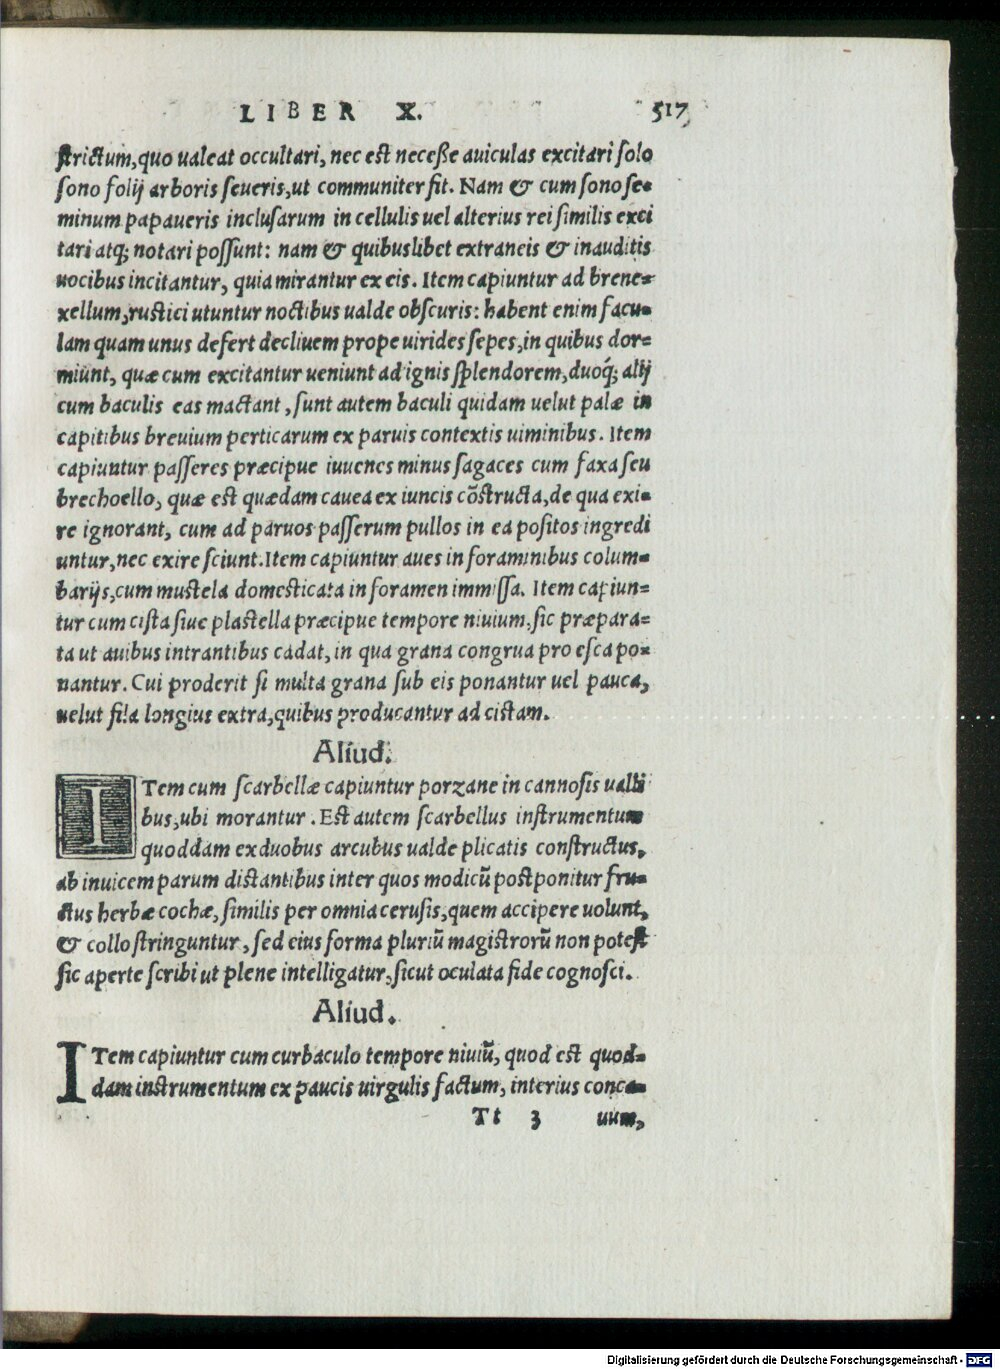 LIBER X. 517
strictum, quo ualeat occultari, nec est necesse auiculas excitari solo
sono folij arboris seueris, ut communiter fit. Nam & cum sono se=
minum papaueris inclusarum in cellulis uel alterius rei similis exci
tari atq; notari possunt: nam & quibuslibet extraneis & inauditis
uocibus incitantur, quia mirantur ex eis. Item capiuntur ad brene=
xellum, rustici utuntur noctibus ualde obscuris: habent enim facu=
lam quam unus defert decliuem prope uirides sepes, in quibus dor=
miunt, quæ cum excitantur ueniunt ad ignis splendorem, duoq́; alij
cum baculis eas mactant, sunt autem baculi quidam uelut palæ in
capitibus breuium perticarum ex paruis contextis uiminibus. Item
capiuntur passeres præcipue iuuenes minus sagaces cum faxa seu
brechoello, quæ est quædam cauea ex iuncis cõstructa, de qua exi=
re ignorant, cum ad paruos passerum pullos in ea positos ingredi
untur, nec exire sciunt. Item capiuntur aues in foraminibus colum=
barijs, cum mustela domesticata in foramen immissa. Item capiun=
tur cum cista siue plastella præcipue tempore niuium, sic præpara=
ta ut auibus intrantibus cadat, in qua grana congrua pro esca po=
nantur. Cui proderit si multa grana sub eis ponantur uel pauca,
uelut fila longius extra, quibus producantur ad cistam.
Aliud.
ITem cum scarbellæ capiuntur porzane in cannosis ualli
bus, ubi morantur. Est autem scarbellus instrumentum
quoddam ex duobus arcubus ualde plicatis constructus,
ab inuicem parum distantibus inter quos modicũ postponitur fru=
ctus herbæ cochæ, similis per omnia cerusis, quem accipere uolunt,
& collo stringuntur, sed eius forma pluriũ magistrorũ non potest
sic aperte scribi ut plene intelligatur, sicut oculata fide cognosci.
Aliud.
ITem capiuntur cum curbaculo tempore niuiũ, quod est quod=
dam instrumentum ex paucis uirgulis factum, interius conca=
Tt 3 uum,
Digitalisierung gefördert durch die Deutsche Forschungsgemeinschaft - DFG